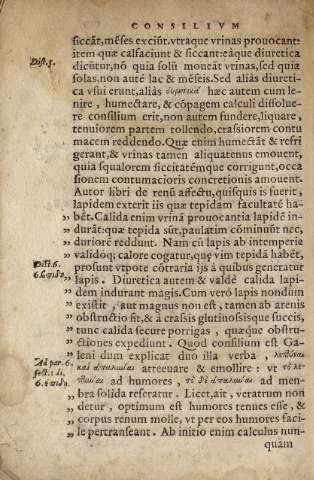 CONSILIVM
siccāt, mēses exciūt. vtraque vrinas prouocant:
item quæ calfaciunt & siccant: eaque diuretica
Dist. 5.
dicūtur, nō quia solū mouēt vrinas, sed quia
solas, non autē lac & mēseis. Sed aliàs diureti-
ca vsui erunt, aliàs
hæc autem cum le-
nire, humectare, & cōpagem calculi dissolue-
re consilium erit, non autem fundere, liquare,
tenuiorem partem tollendo, crasiorem contu
macem reddendo. Quæ enim humectāt & refri
gerant, & vrinas tamen aliquatenus emouent,
quia squalorem siccitatémque corrigunt, occa
sionem contumacioris concretionis amouent.
Autor libri de renū affectu, quisquis is fuerit,
lapidem exterit iis quæ tepidam facultatē ha-
„ bēt. Calida enim vrinā prouocantia lapidē in-
„ durāt: quæ tepida sūt, paulatim cōminūt nec,
„ duriorē reddunt. Nam cū lapis ab intemperie
„ validoq; calore cogatur, que vim tepidā habēt,
Dist. 6.
„ prosunt vtpote cōtraria ijs à quibus generatur
„ lapis. Diuretica autem & valdè calida lapi-
„ dem indurant magis. Cum verò lapis nondum
„ existit, aut magnus non est, tamen ab atenis
„ obstructio sit, & à crassis glutinosisque succis,
„ tunc calida securè porrigas, quæque obstru-
„ ctiones expediunt. Quod consilium est Ga-
„ leni dum explicat duo illa verba,
Ad par. 6.
sect. 1. li.
„ atteeuare & emollire: vt
„ ad humores, ad mem-
„ bra solida referatur. Licet, ait, veratrum non
„ detur, optimum est humores tenues esse, &
„ corpus renum molle, vt per eos humores faci-
„ le pertranseant. Ab initio enim calculus nun-
quam